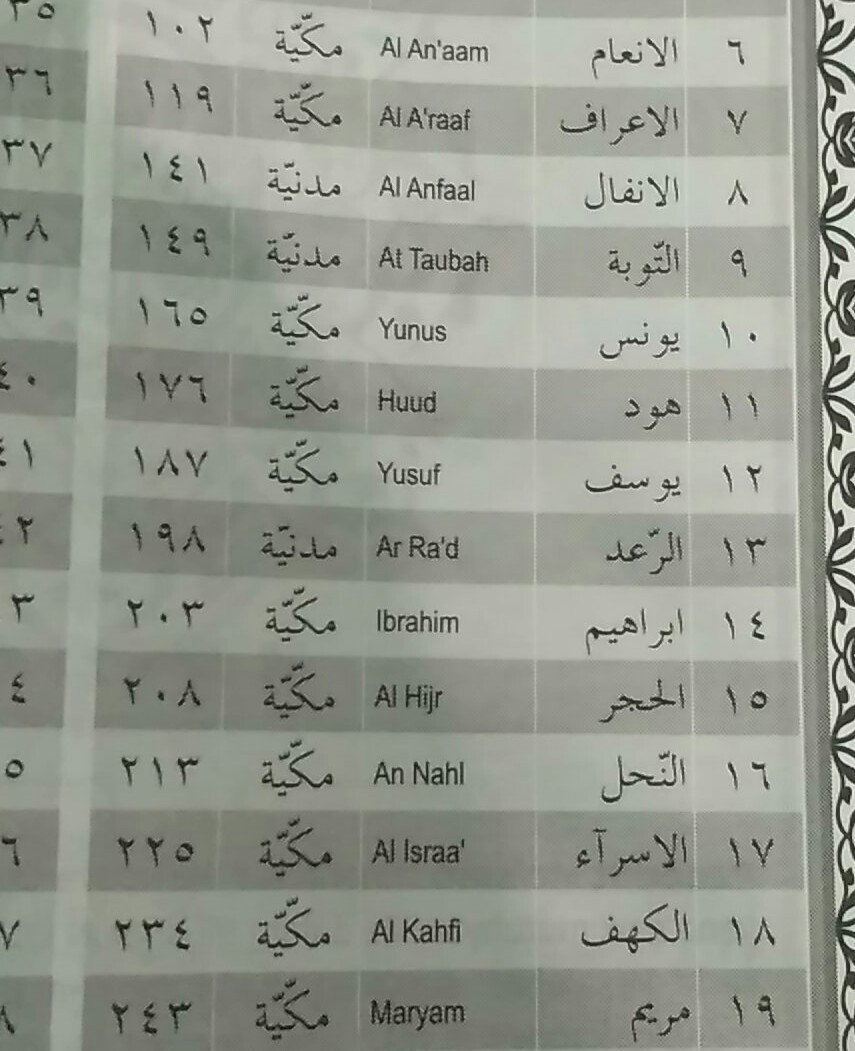 ٦ الانعام Al An'aam مكّيّة ١٠٢ ٣٥
٧ الاعراف Al A'raaf مكّيّة ١١٩ ٣٦
٨ الانفال Al Anfaal مدنيّة ١٤١ ٣٧
٩ التّوبة At Taubah مدنيّة ١٤٩ ٣٨
١٠ يونس Yunus مكّيّة ١٦٥ ٣٩
١١ هود Huud مكّيّة ١٧٦ ٤٠
١٢ يوسف Yusuf مكّيّة ١٨٧ ٤١
١٣ الرّعد Ar Ra'd مدنيّة ١٩٨ ٤٢
١٤ ابراهيم Ibrahim مكّيّة ٢٠٣ ٣
١٥ الحجر Al Hijr مكّيّة ٢٠٨ ٤
١٦ النّحل An Nahl مكّيّة ٢١٣ ٥
١٧ الاسرآء Al Israa' مكّيّة ٢٢٥ ٦
١٨ الكهف Al Kahfi مكّيّة ٢٣٤ ٧
١٩ مريم Maryam مكّيّة ٢٤٣ ٨